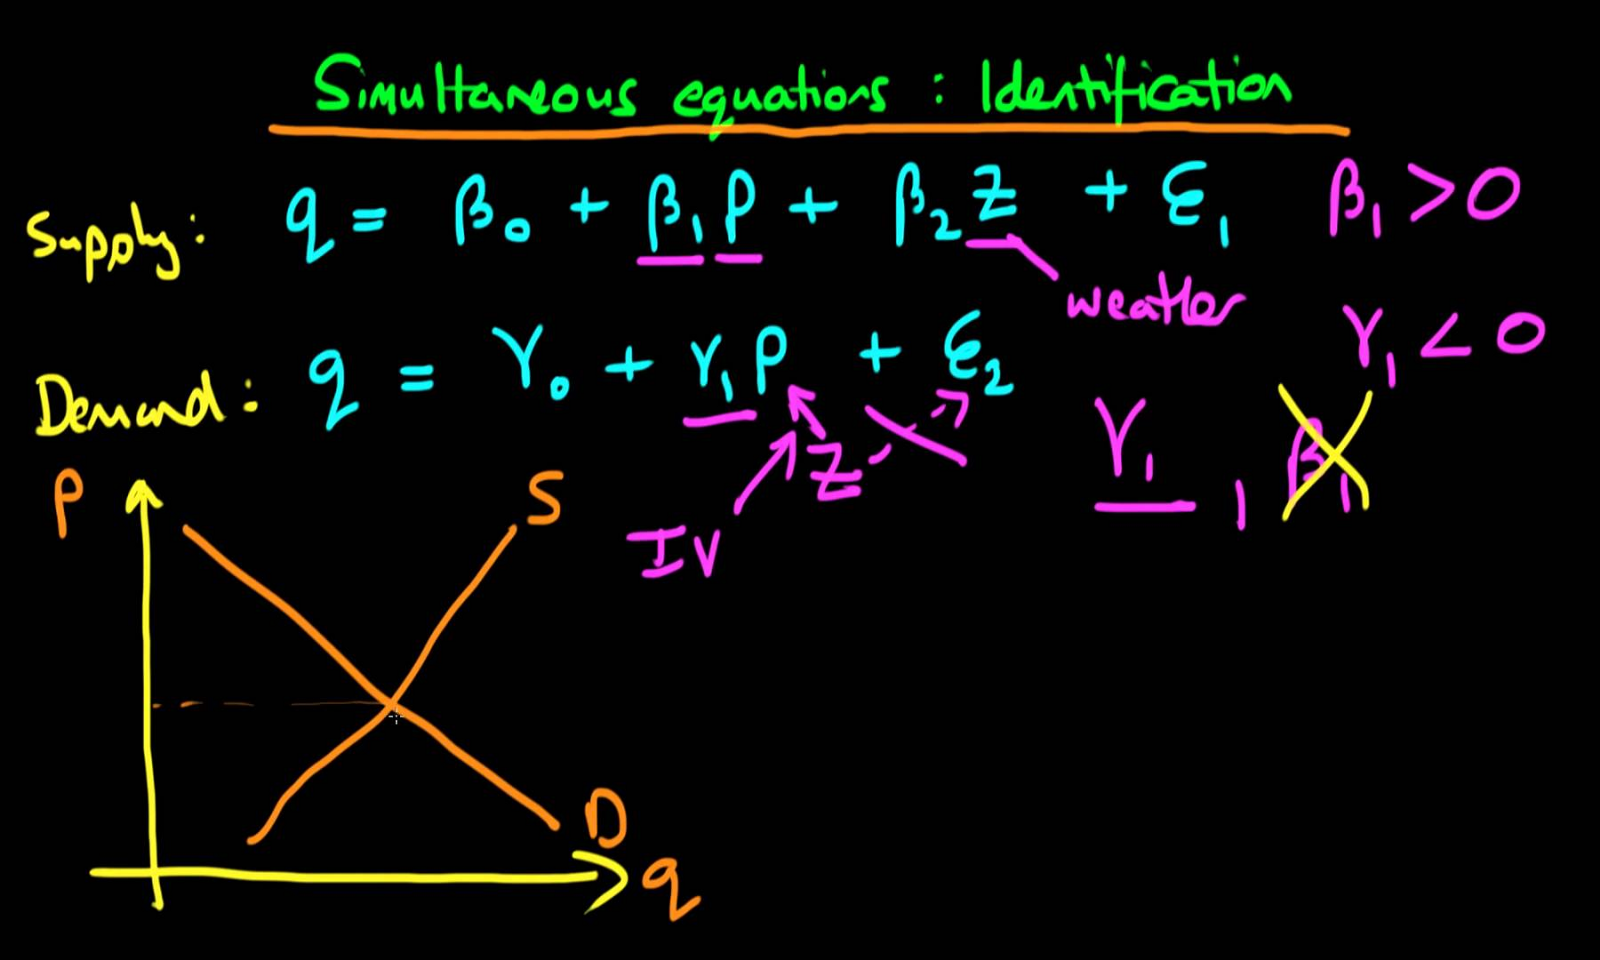 Simultaneous equations : Identification
Supply: q = β₀ + β₁p + β₂z + ε₁ β₁ > 0
weather
Demand: q = γ₀ + γ₁p + ε₂ γ₁ < 0
z
IV
γ₁ , β₁
P
S
D
q